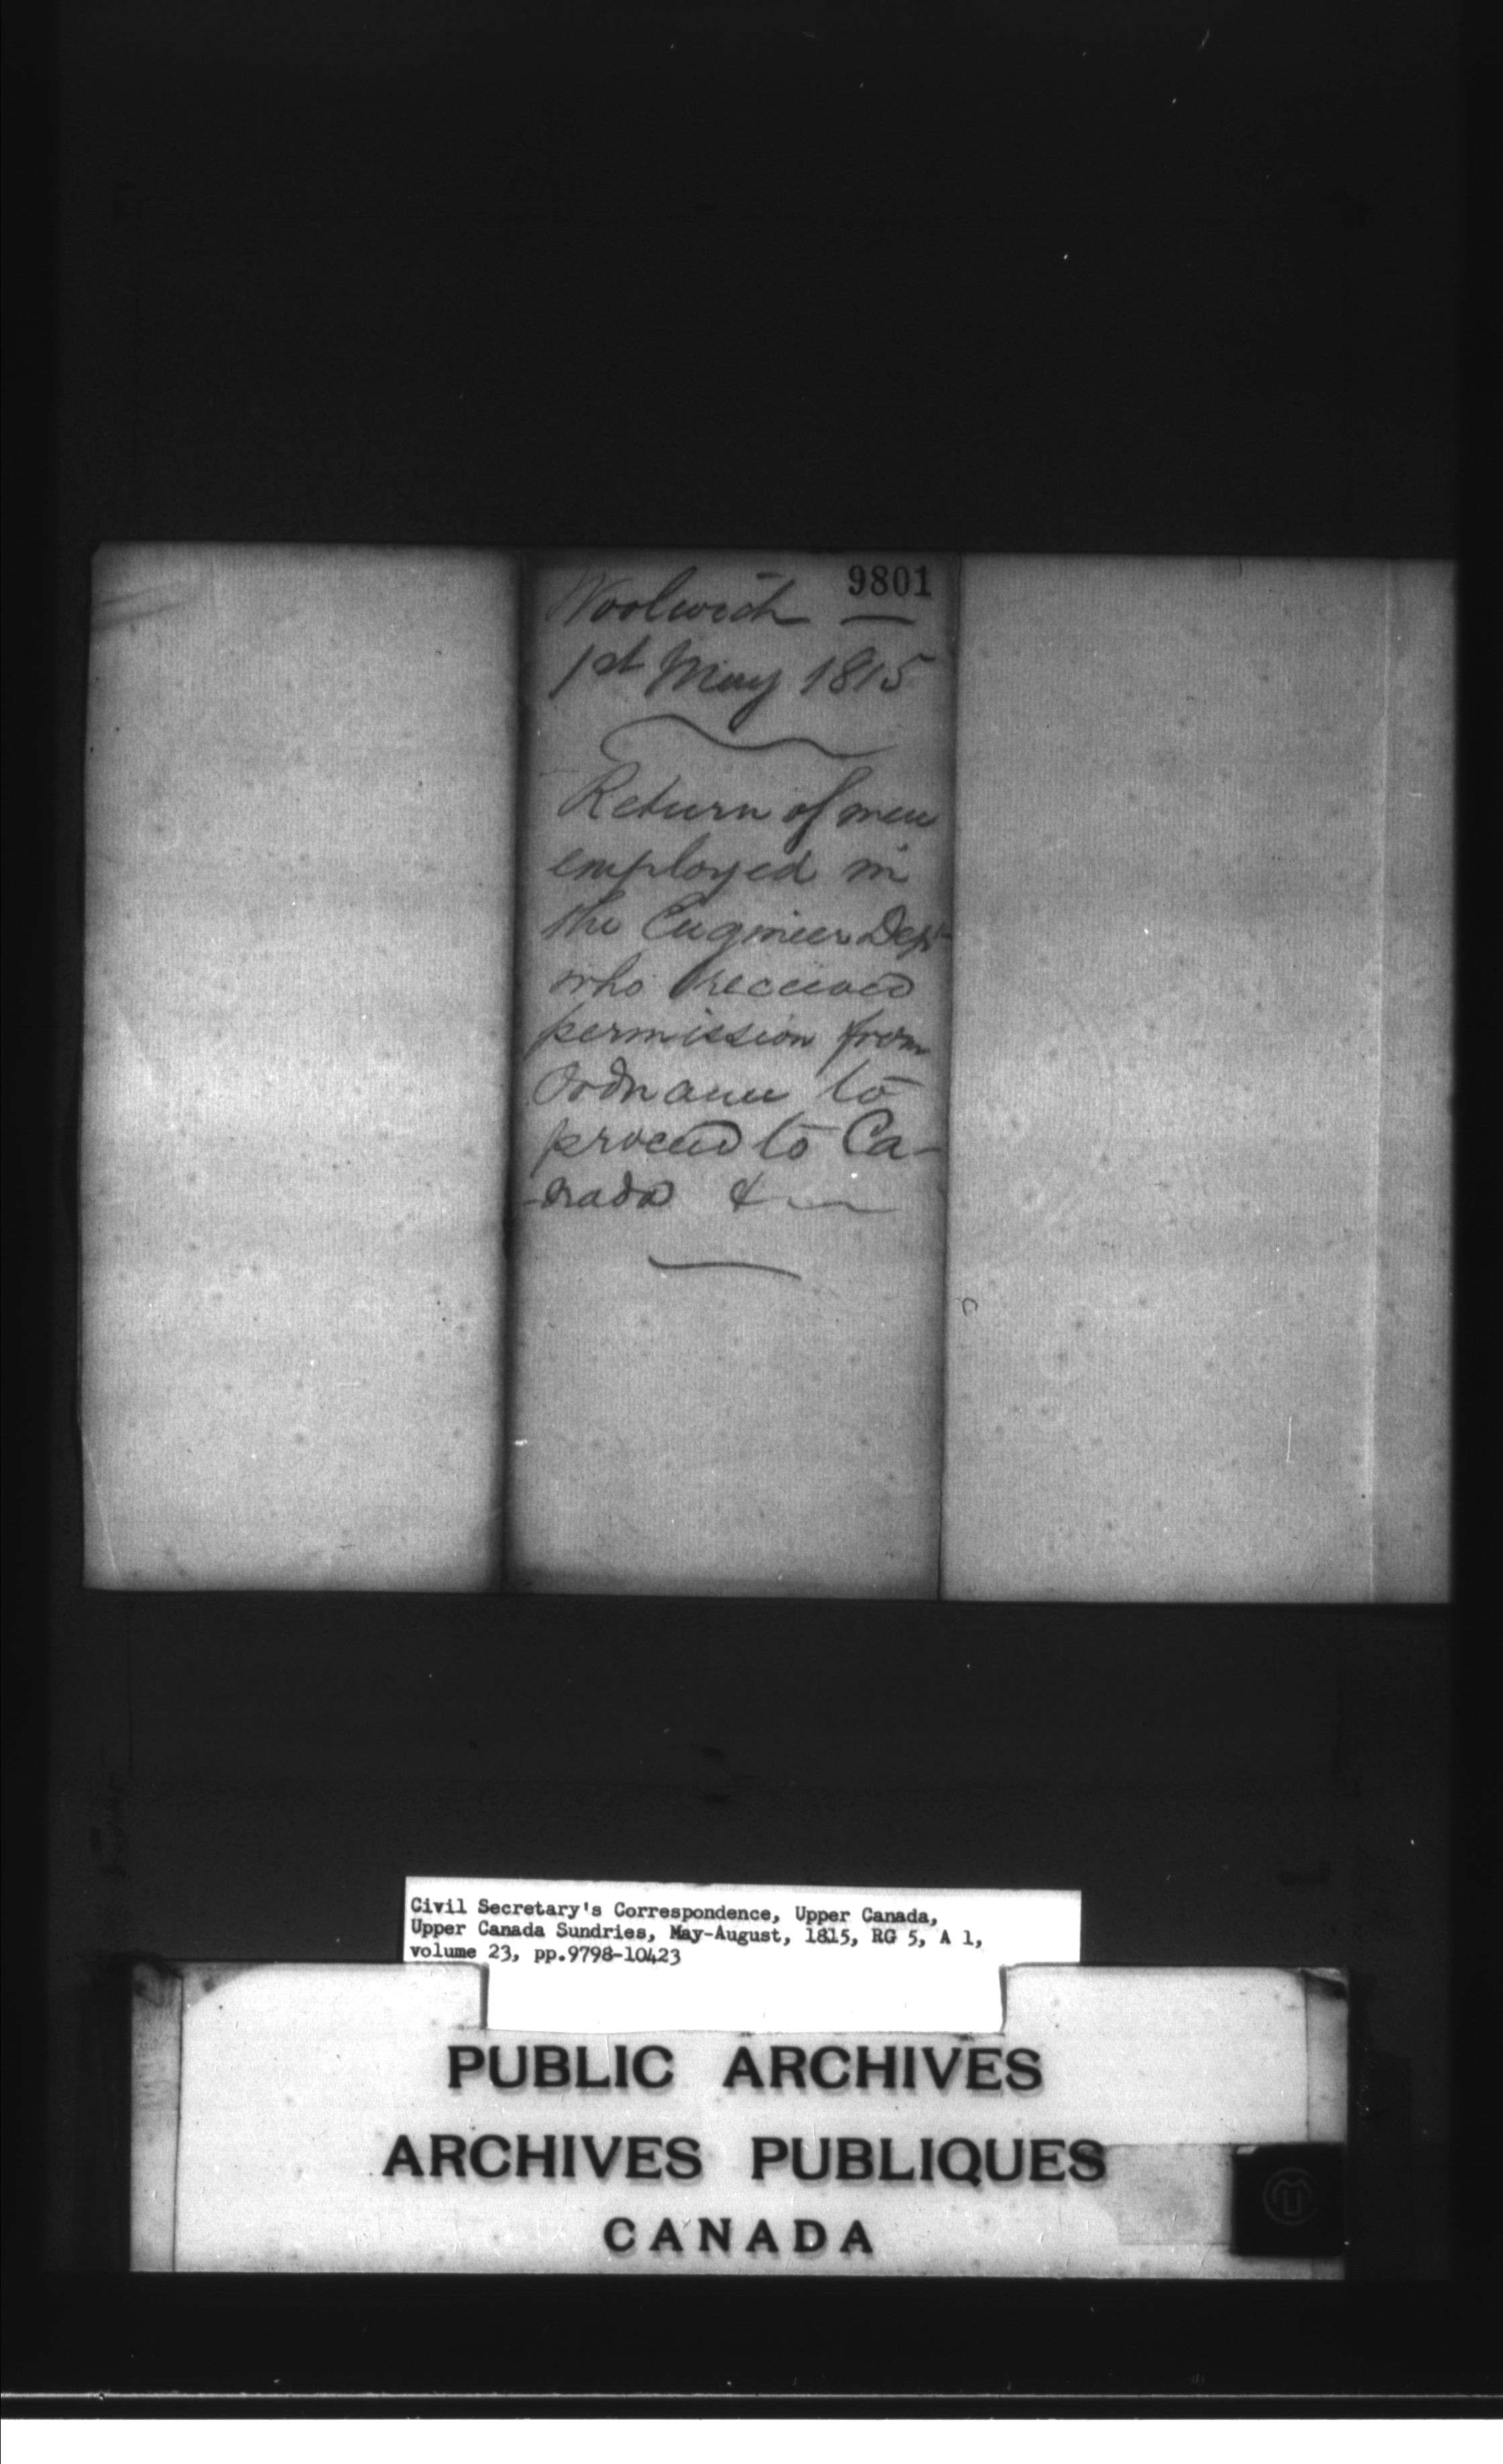 9801
Woolwich —
1st May 1815
Return of men
employed in
the Engineer Dept
who received
permission from
Ordnance to
proceed to Ca-
-nada &
Civil Secretary's Correspondence, Upper Canada,
Upper Canada Sundries, May-August, 1815, RG 5, A 1,
volume 23, pp.9798-10423
PUBLIC ARCHIVES
ARCHIVES PUBLIQUES
CANADA